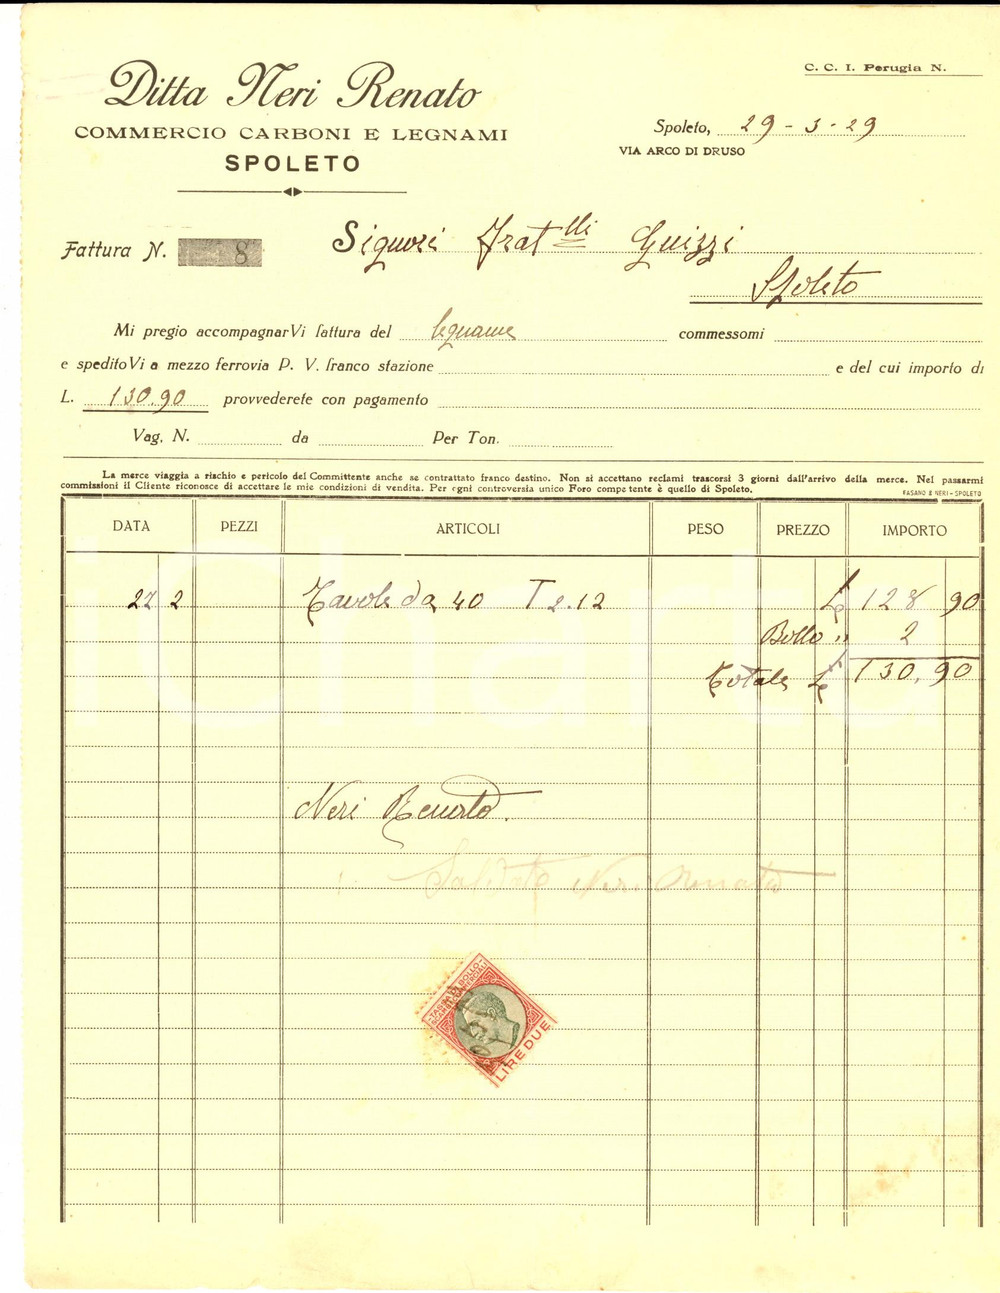 C. C. I. Perugia N.
Ditta Neri Renato
COMMERCIO CARBONI E LEGNAMI
SPOLETO
Spoleto, 29 - 3 - 29
VIA ARCO DI DRUSO
Fattura N. 8
Signori Frat^lli Guizzi
Spoleto
Mi pregio accompagnarVi fattura del legname commessomi
e speditoVi a mezzo ferrovia P. V. franco stazione e del cui importo di
L. 130.90 provvederete con pagamento
Vag. N. da Per Ton.
La merce viaggia a rischio e pericolo del Committente anche se contrattato franco destino. Non si accettano reclami trascorsi 3 giorni dall'arrivo della merce. Nel passarmi
commissioni il Cliente riconosce di accettare le mie condizioni di vendita. Per ogni controversia unico Foro competente è quello di Spoleto.
PASANO & NERI - SPOLETO
DATA PEZZI ARTICOLI PESO PREZZO IMPORTO
27 2 Tavole da 40 T 2.12 L 128 90
Bollo " 2
Totale L 130,90
Neri Renato.
Saldato Neri Renato
TASSA DI BOLLO
SCAMBI COMMERCIALI
LIRE DUE
iCharta